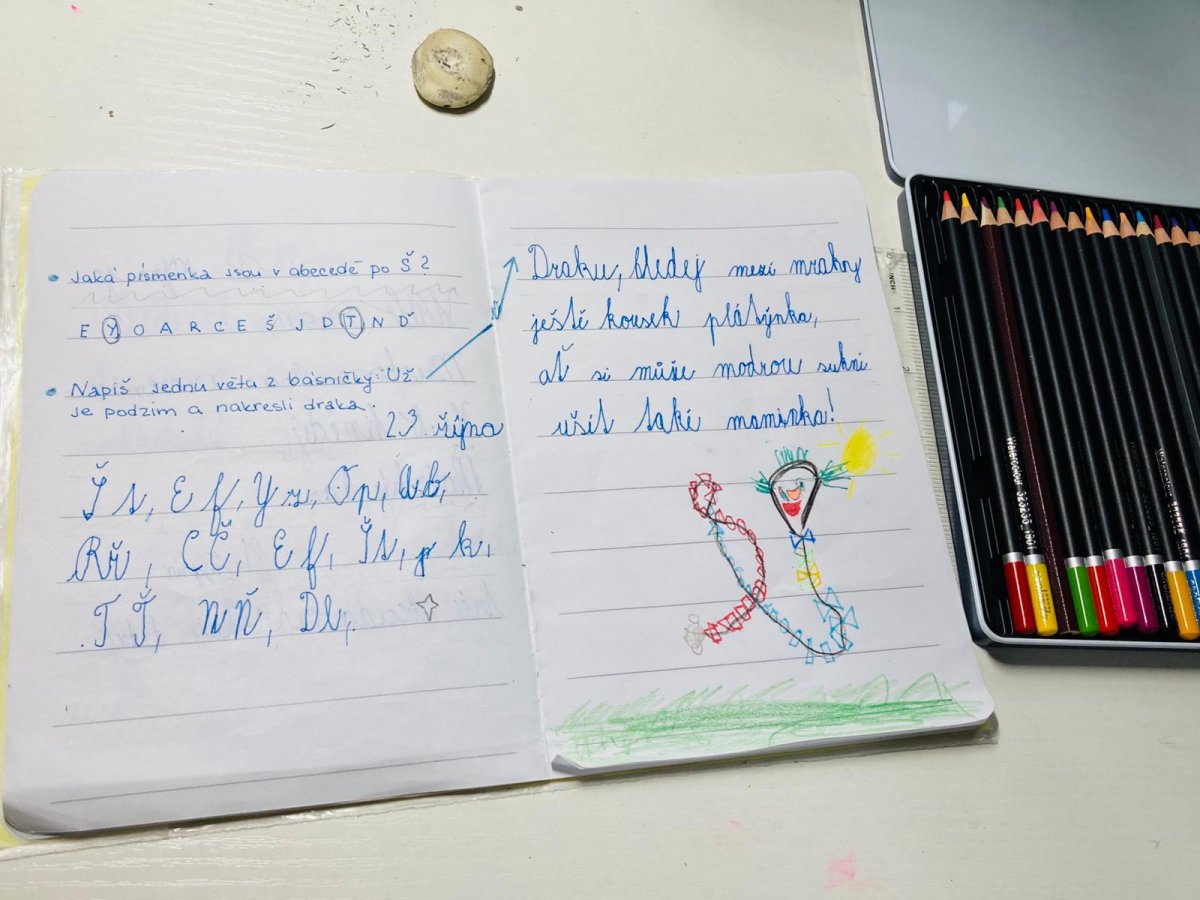 Jaká písmenka jsou v abecedě po Š?
E Y O A R C E Š J D T N Ď
Napiš jednu větu z básničky: Už
je podzim a nakresli draka.
23. října
Šs, Ef, Yz, Op, Ab,
Rř, CČ, Ef, Šs, jk,
TŤ, NŇ, Dl,
Draku, hledej mezi mraky
ještě kousek plátýnka,
ať si může modrou sukni
ušít také maminka!
INCH
1
2
Watercolour 323235